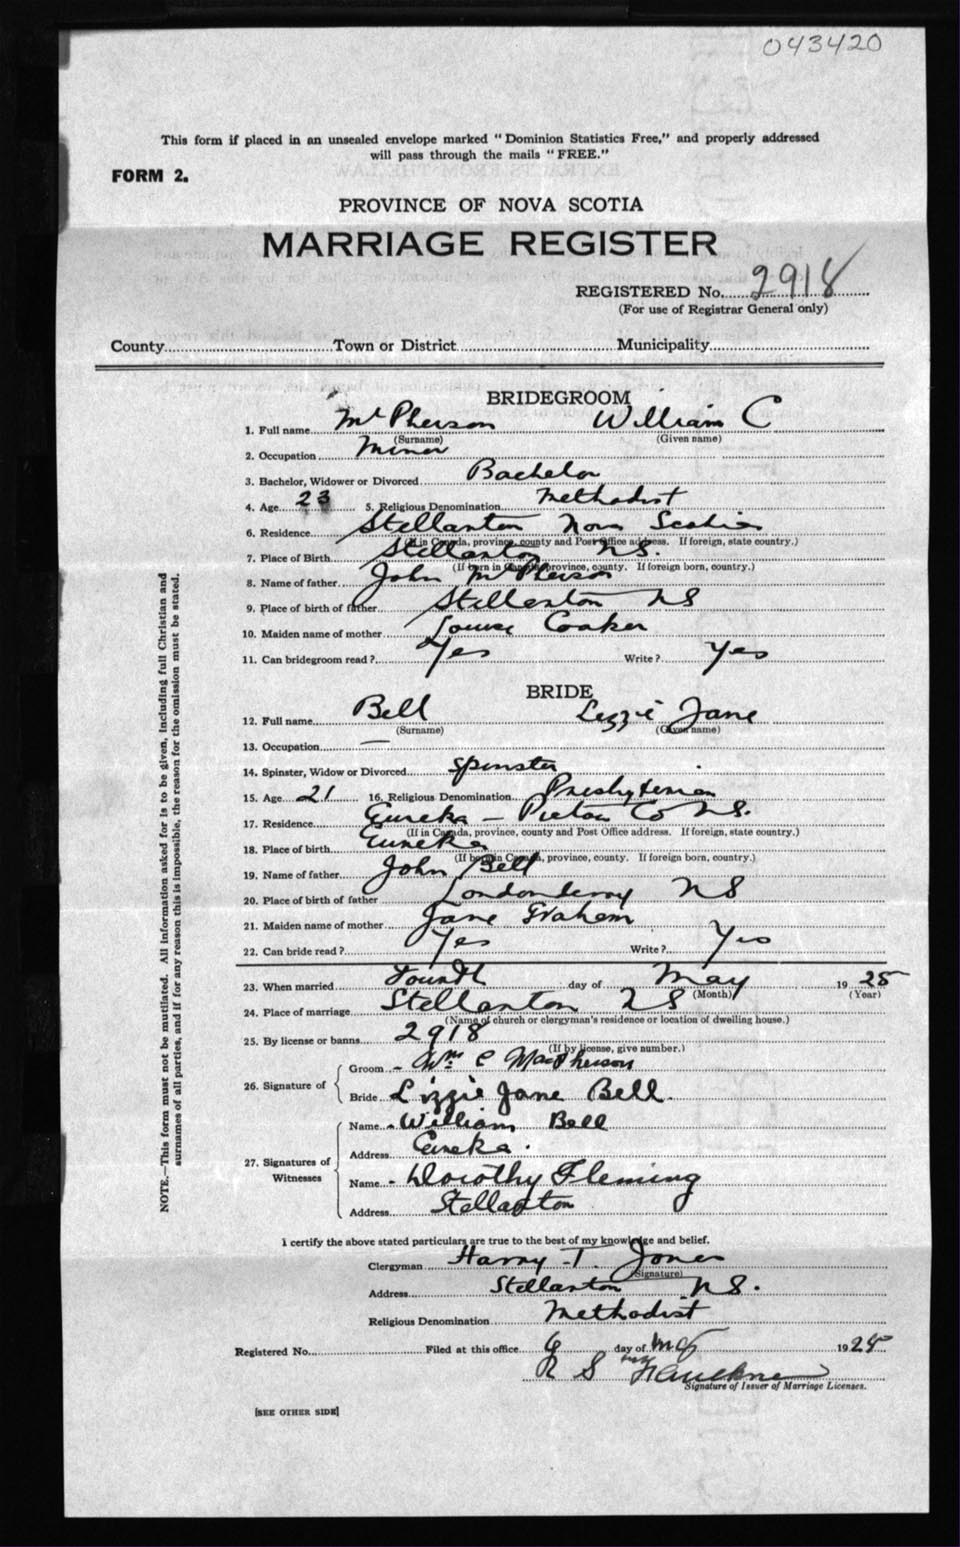 043420
This form if placed in an unsealed envelope marked "Dominion Statistics Free," and properly addressed
will pass through the mails "FREE."
FORM 2.
PROVINCE OF NOVA SCOTIA
MARRIAGE REGISTER
REGISTERED No. 2918
(For use of Registrar General only)
County Town or District Municipality
BRIDEGROOM
1. Full name McPherson William C
(Surname) (Given name)
2. Occupation Miner
3. Bachelor, Widower or Divorced Bachelor
4. Age 23 5. Religious Denomination Methodist
6. Residence Stellarton Nova Scotia
(If in Canada, province, county and Post Office address. If foreign, state country.)
7. Place of Birth Stellarton NS.
(If born in Canada province, county. If foreign born, country.)
8. Name of father John McPherson
9. Place of birth of father Stellarton NS
10. Maiden name of mother Louise Coaker
11. Can bridegroom read? Yes Write? Yes
BRIDE
12. Full name Bell Lizzie Jane
(Surname) (Given name)
13. Occupation —
14. Spinster, Widow or Divorced Spinster
15. Age 21 16. Religious Denomination Presbyterian
17. Residence Eureka - Pictou Co NS.
(If in Canada, province, county and Post Office address. If foreign, state country.)
18. Place of birth Eureka
(If born in Canada, province, county. If foreign born, country.)
19. Name of father John Bell
20. Place of birth of father Londonderry NS
21. Maiden name of mother Jane Graham
22. Can bride read? Yes Write? Yes
23. When married Fourth day of May 1925
(Month) (Year)
24. Place of marriage Stellarton NS
(Name of church or clergyman's residence or location of dwelling house.)
25. By license or banns 2918
(If by license, give number.)
26. Signature of
Groom - Wm C MacPherson
Bride Lizzie Jane Bell.
27. Signatures of Witnesses
Name - William Bell
Address Eureka.
Name - Dorothy Fleming
Address Stellarton
I certify the above stated particulars are true to the best of my knowledge and belief.
Clergyman Harry T. Jones
(Signature)
Address Stellarton NS.
Religious Denomination Methodist
Registered No. Filed at this office 6 day of May 1925
R S Faulkner
Signature of Issuer of Marriage Licenses.
[SEE OTHER SIDE]
NOTE.—This form must not be mutilated. All information asked for is to be given, including full Christian and
surnames of all parties, and if for any reason this is impossible, the reason for the omission must be stated.